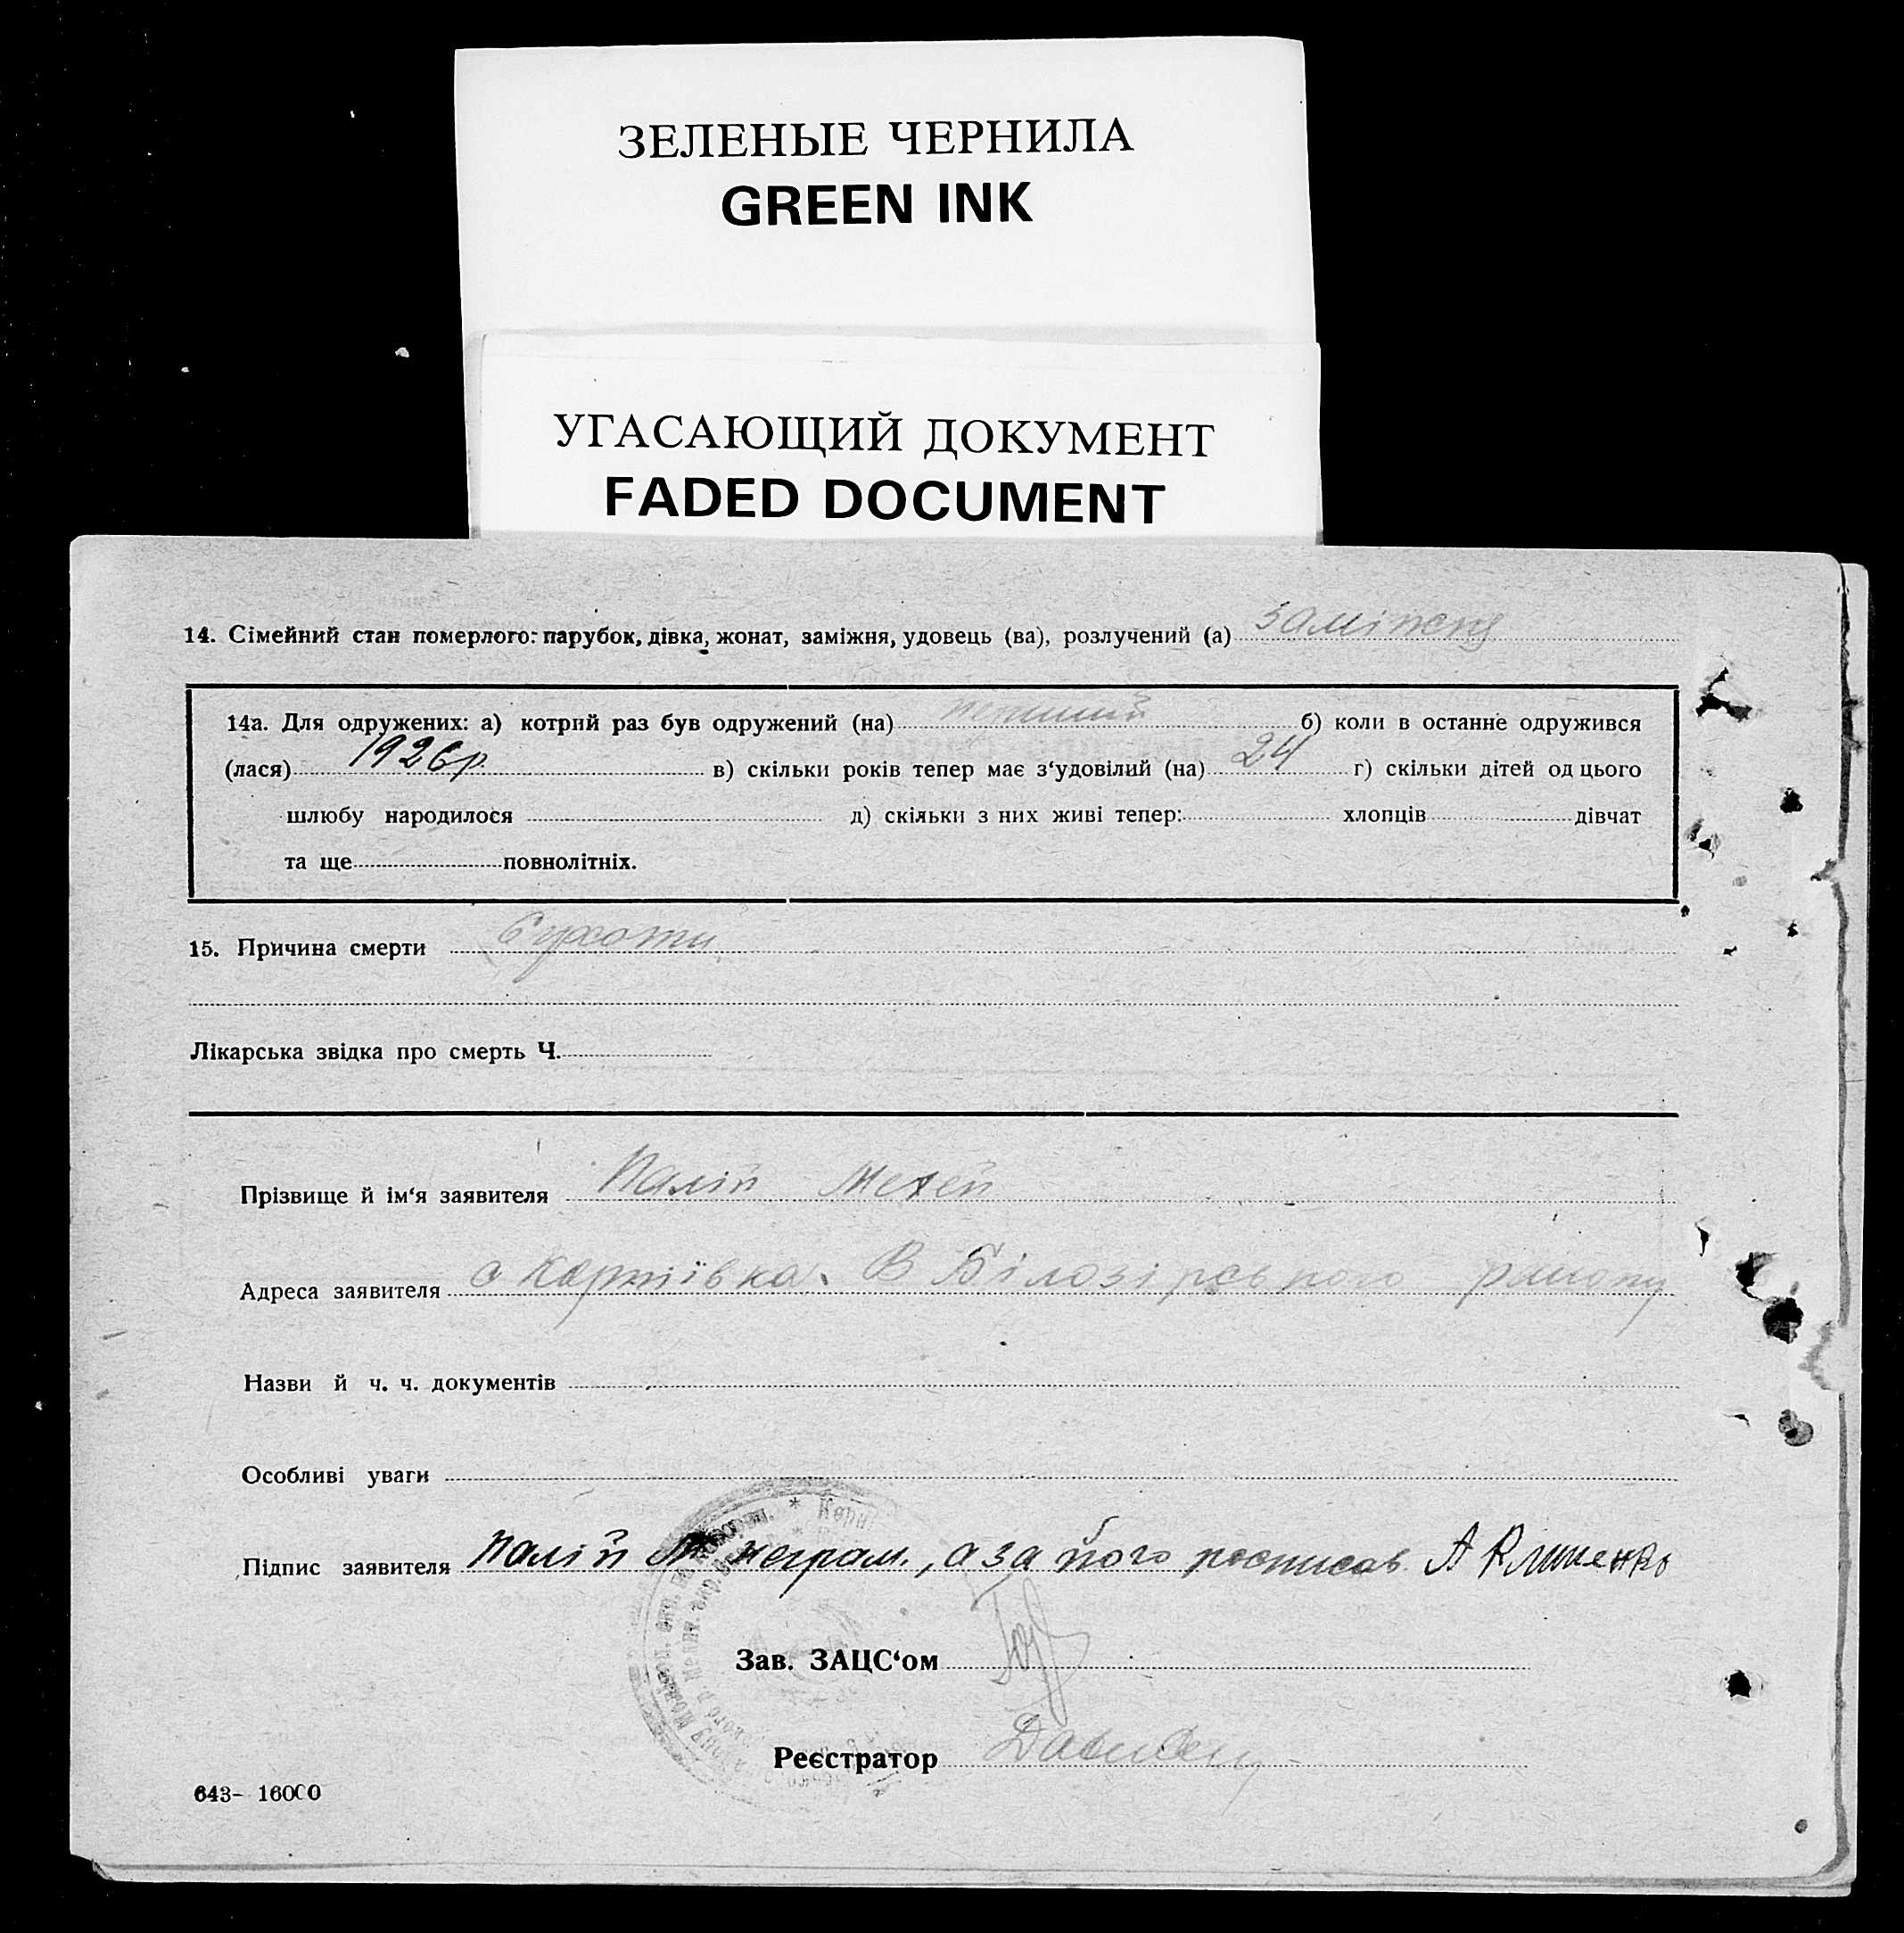 ЗЕЛЕНЫЕ ЧЕРНИЛА
GREEN INK
УГАСАЮЩИЙ ДОКУМЕНТ
FADED DOCUMENT
14. Сімейний стан померлого: парубок, дівка, жонат, заміжня, удовець (ва), розлучений (а) заміжня
14а. Для одружених: а) котрий раз був одружений (на) перший б) коли в останнє одружився
(лася) 1926р в) скільки років тепер має з‘удовілий (на) 24 г) скільки дітей од цього
шлюбу народилося д) скільки з них живі тепер: хлопців дівчат
та ще повнолітніх.
15. Причина смерти Сухоти
Лікарська звідка про смерть Ч.
Прізвище й ім‘я заявителя Палій
Адреса заявителя с В Білозірського району
Назви й ч. ч. документів
Особливі уваги
Підпис заявителя Палій М неграм., а за його росписав А
Зав. ЗАЦС‘ом
Реєстратор
643- 16000